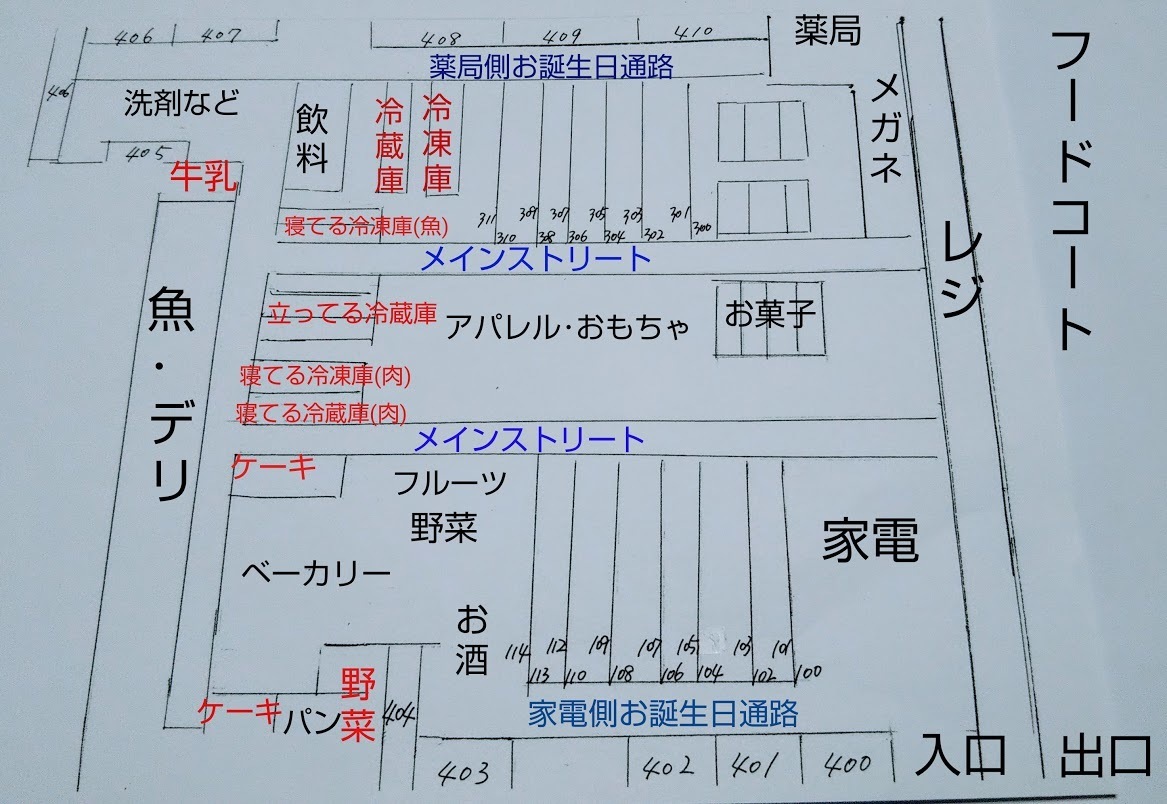 406
407
408
409
410
薬局
フードコート
薬局側お誕生日通路
406
洗剤など
飲料
冷蔵庫
冷凍庫
メガネ
405
牛乳
寝てる冷凍庫(魚)
311
309
307
305
303
301
310
308
306
304
302
300
メインストリート
レジ
魚・デリ
立ってる冷蔵庫
アパレル・おもちゃ
お菓子
寝てる冷凍庫(肉)
寝てる冷蔵庫(肉)
メインストリート
ケーキ
フルーツ
野菜
家電
ベーカリー
お酒
114
112
109
107
105
103
101
113
110
108
106
104
102
100
野菜
ケーキ
パン
404
家電側お誕生日通路
403
402
401
400
入口
出口